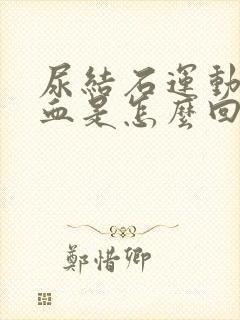 尿結石運動
血是怎麼回
鄭惜卿